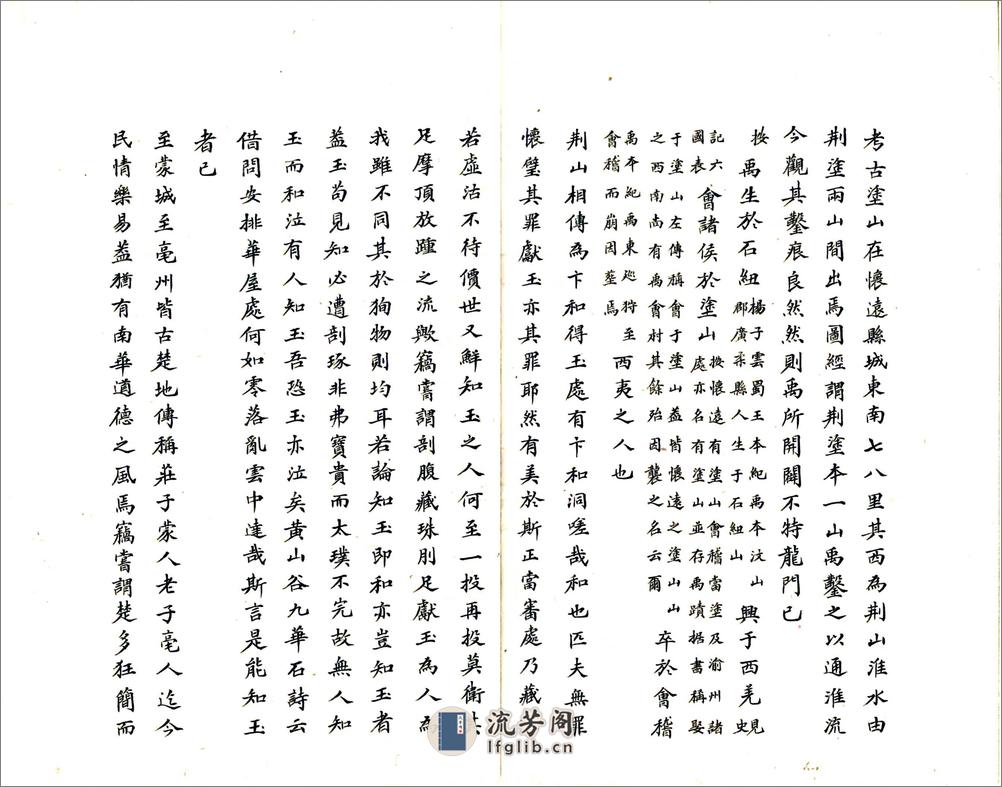 考古塗山在懷遠縣城東南七八里其西為荆山淮水由
荆塗兩山間出焉圖經謂荆塗本一山禹鑿之以通淮流
今觀其鑿痕良然然則禹所開闢不特龍門已
按禹生於石紐楊子雲蜀王本紀禹本汶山郡廣柔縣人生于石紐山興于西羌見史
記六國表會諸侯於塗山按懷遠有塗山會稽當塗及渝州諸處亦名有塗山並存禹蹟据書稱娶
于塗山左傳稱會于塗山蓋皆懷遠之塗山山之西南尚有禹會村其餘殆因襲之名云爾卒於會稽
禹本紀禹東廵狩至會稽而崩因塟焉西夷之人也
荆山相傳為卞和得玉處有卞和洞嗟哉和也匹夫無罪
懷璧其罪獻玉亦其罪耶然有美於斯正當審處乃藏
若虛沽不待價世又鮮知玉之人何至一投再投莫衛
足摩頂放踵之流歟竊嘗謂剖腹藏珠刖足獻玉為人
我雖不同其於狥物則均耳若論知玉即和亦豈知玉者
葢玉茍見知必遭剖琢非弗寶貴而太璞不完故無人知
玉而和泣有人知玉吾恐玉亦泣矣黄山谷九華石詩云
借問安排華屋處何如零落亂雲中達哉斯言是能知玉
者已
至蒙城至亳州皆古楚地傳稱莊子蒙人老子亳人迄今
民情樂易葢猶有南華道德之風焉竊嘗謂楚多狂簡而
流芳阁
lfglib.cn